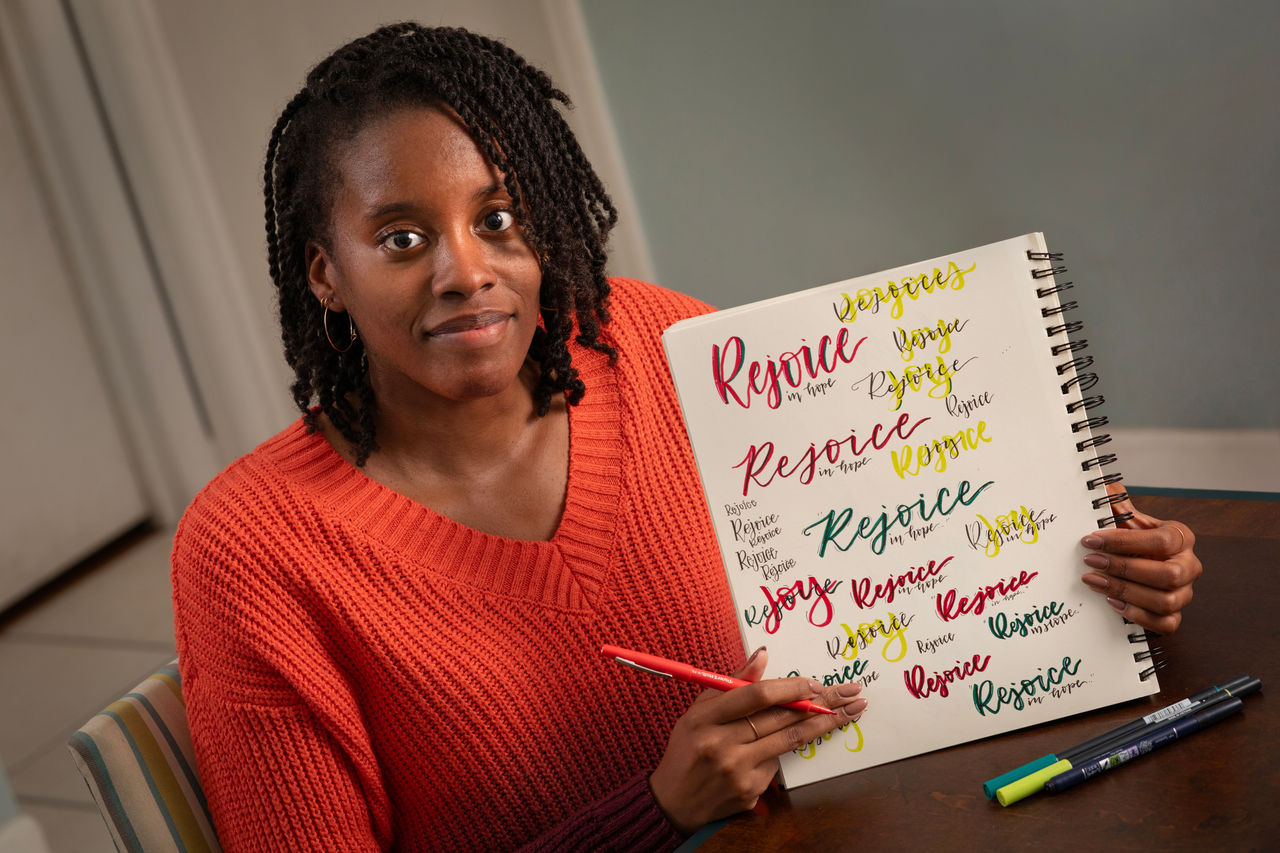 Rejoices
Rejoice
in hope
Rejoice
Joy
Rejoice
Joy
Rejoice
Rejoice
in hope
Rejoyice
Rejoice
Rejoice
Rejoice
Rejoice
Rejoice
Rejoice
in hope
Rejoice
in hope
Joy
Rejoye
Joy
Rejoice
in hope
Rejoice
in hope
"Rejoice
in hope."
Rejoice
Joy
Rejoice
Rejoice
"Rejoice
in hope."
hope